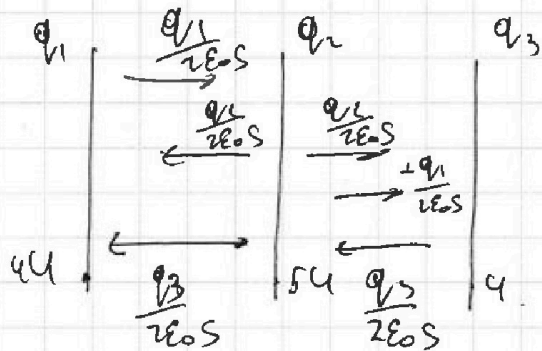 q₁ q₁/2ε₀S q₂ q₃
q₂/2ε₀S q₂/2ε₀S
+q₁/2ε₀S
4U 5U U
q₃/2ε₀S q₃/2ε₀S